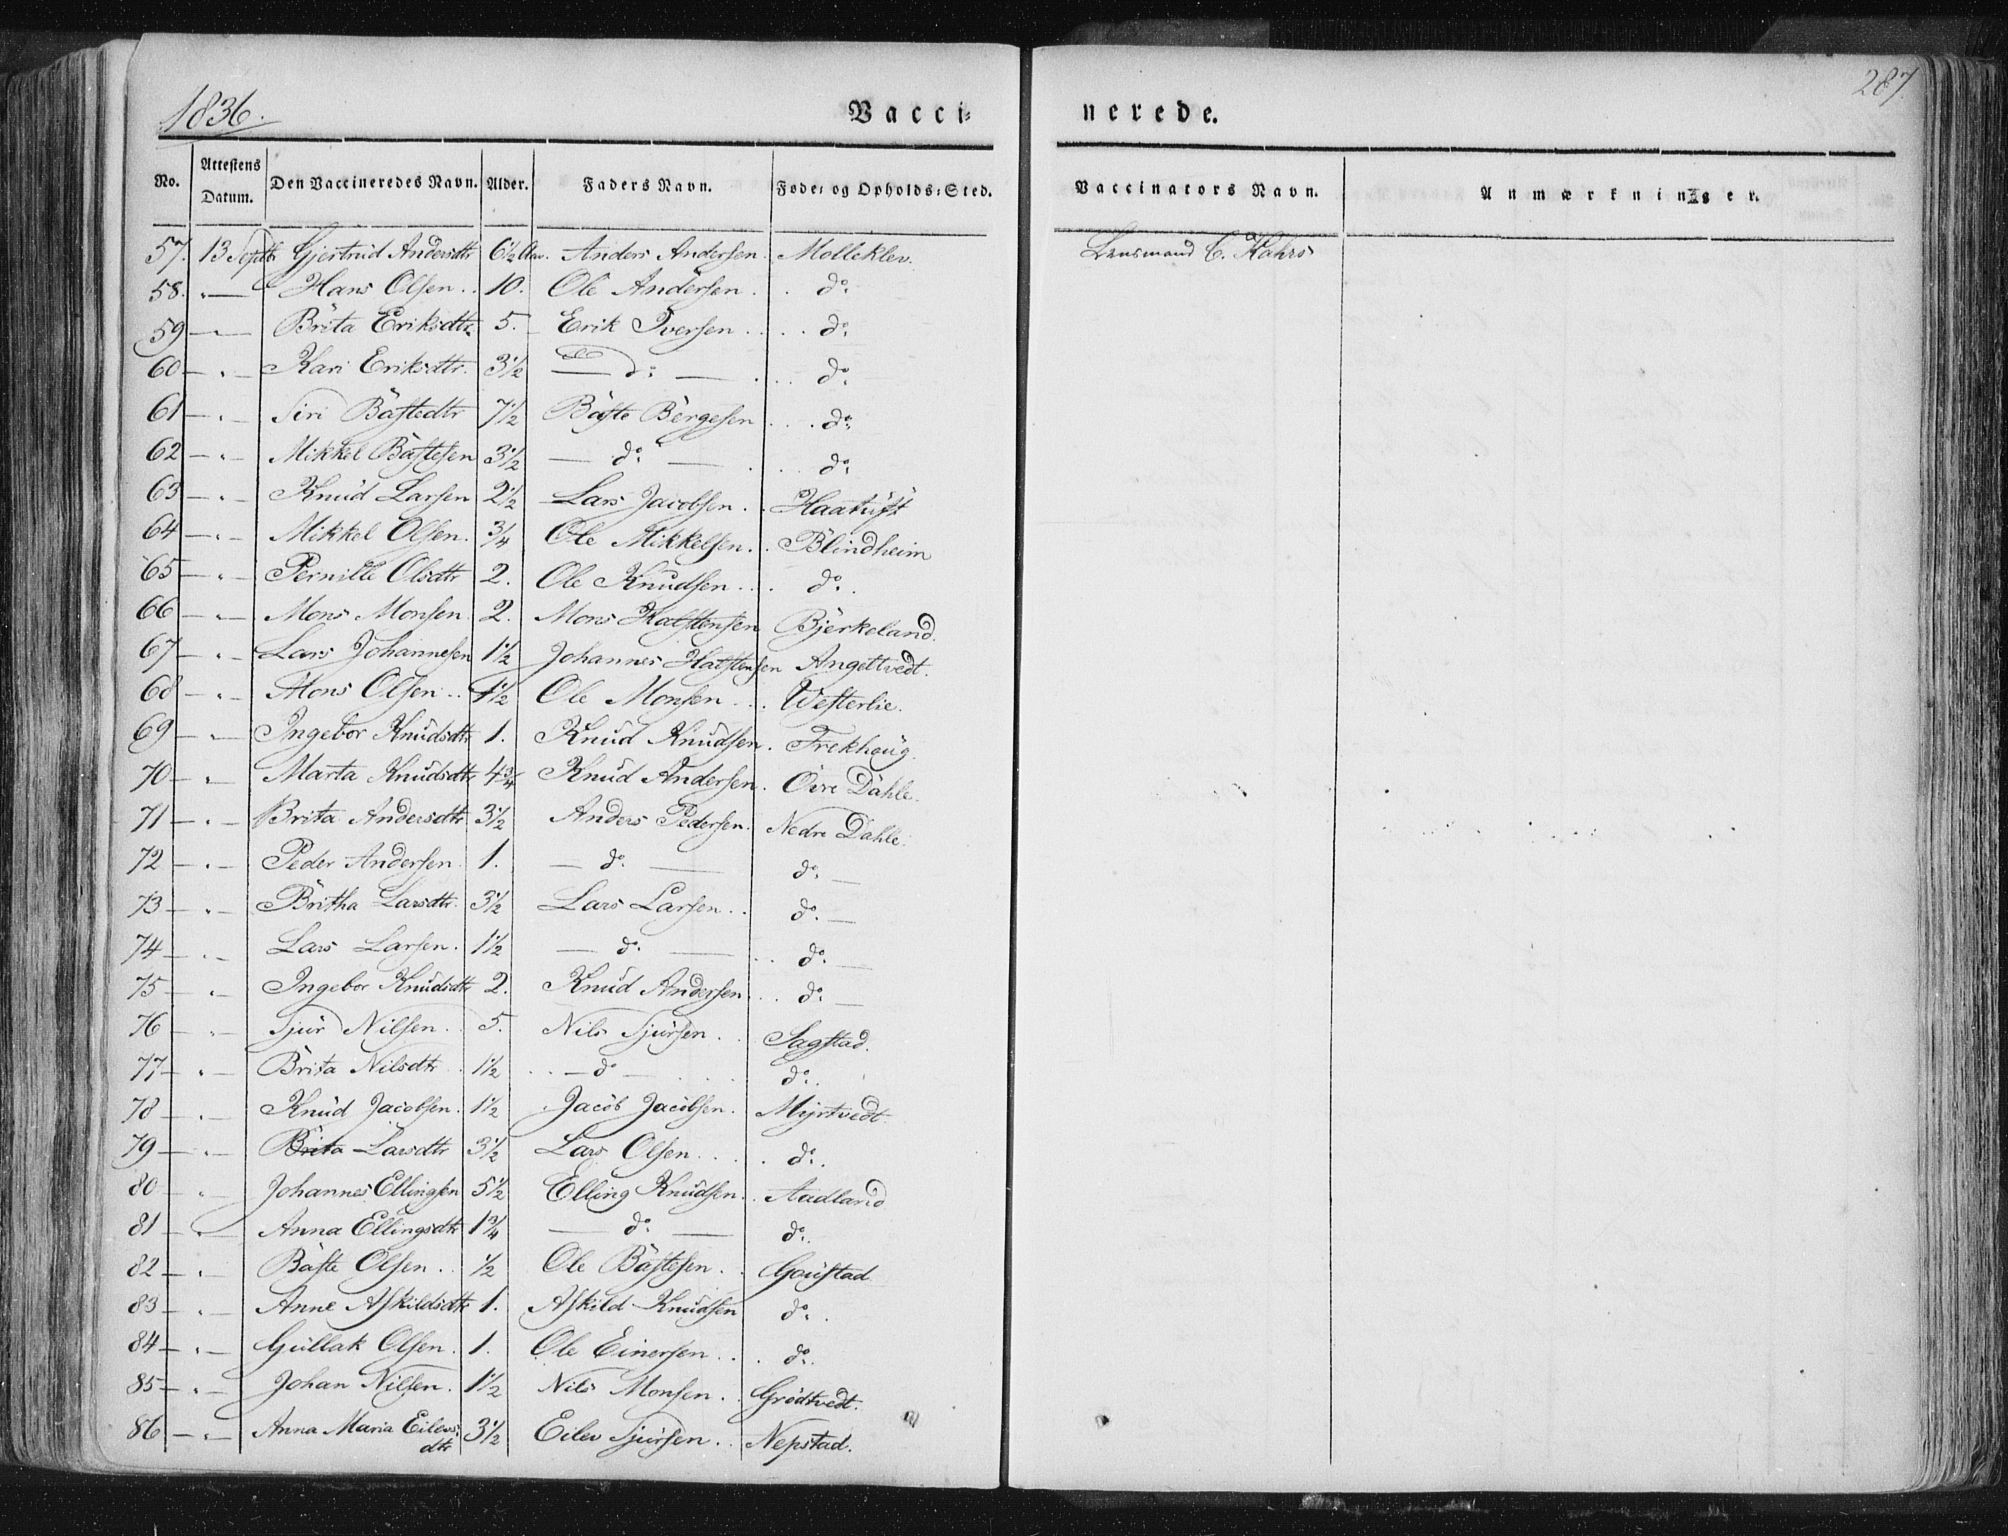 1836.
Vacci-
nerede.
287.
No. Attestens Datum. Den Vaccineredes Navn. Alder. Faders Navn. Føde- og Opholds-Sted. Vaccinators Navn. Anmærkninger.
57. 13 Septbr Gjertrud Andersdtr 6½ Aar. Anders Andersen. Molleklev. Lensmand C. Kahrs
58. " — Hans Olsen. 10. Ole Andersen. do.
59 — " — Brita Eriksdtr. 5. Erik Iversen. do.
60 — " — Kari Eriksdtr. 3½ — do. — do.
61 — " — Siri Bastedtr 7½ Baste Børgesen do.
62 — " — Mikkel Bastesen 3½ — do. — do.
63 — " — Knud Larsen 2½ Lars Jacobsen. Haatuft
64 — " — Mikkel Olsen. ¾ Ole Mikkelsen. Blindheim
65 — " — Pernille Olsdtr 2. Ole Knudsen. do.
66 — " — Mons Monsen 2. Mons Halstensen Bjerkeland.
67 — " — Lars Johannesen 1½ Johannes Halstensen Angeltvedt.
68 — " — Mons Olsen. 1½ Ole Monsen. Westerlie.
69 — " — Ingebor Knudsdtr 1. Knud Knudsen. Frekhoug.
70 — " — Marta Knudsdtr 4¾ Knud Andersen. Övre Dahle.
71 — " — Brita Andersdtr 3½ Anders Pedersen. Nedre Dahle.
72 — " — Peder Andersen. 1. — do. — do. —
73 — " — Britha Larsdtr. 3½ Lars Larsen. do. —
74 — " — Lars Larsen. 1½ — do. — do. —
75 — " — Ingebor Knudsdtr 2. Knud Andersen. do. —
76 — " Sjur Nilsen. 5. Nils Sjursen. Sagstad.
77 — " — Brita Nilsdtr. 1½ — do — do.
78 — " — Knud Jacobsen. 1½ Jacob Jacobsen. Myrtvedt.
79 — " — Brita Larsdtr 3½ Lars Olsen. do.
80 — " Johannes Ellingsen 5½ Elling Knudsen. Aadland
81 — " — Anna Ellingsdtr 1¾ — do. — do.
82 — " — Baste Olsen. ½ Ole Bastesen. Goustad
83 — " — Anne Askildsdtr 1. Askild Knudsen do.
84 — " — Gullak Olsen. 1. Ole Einersen. do.
85 — " — Johan Nilsen. 1½ Nils Monsen. Grödtvedt.
86 — " — Anna Maria Eilevs- 3½ Eilev Sjursen. Nepstad.
dtr